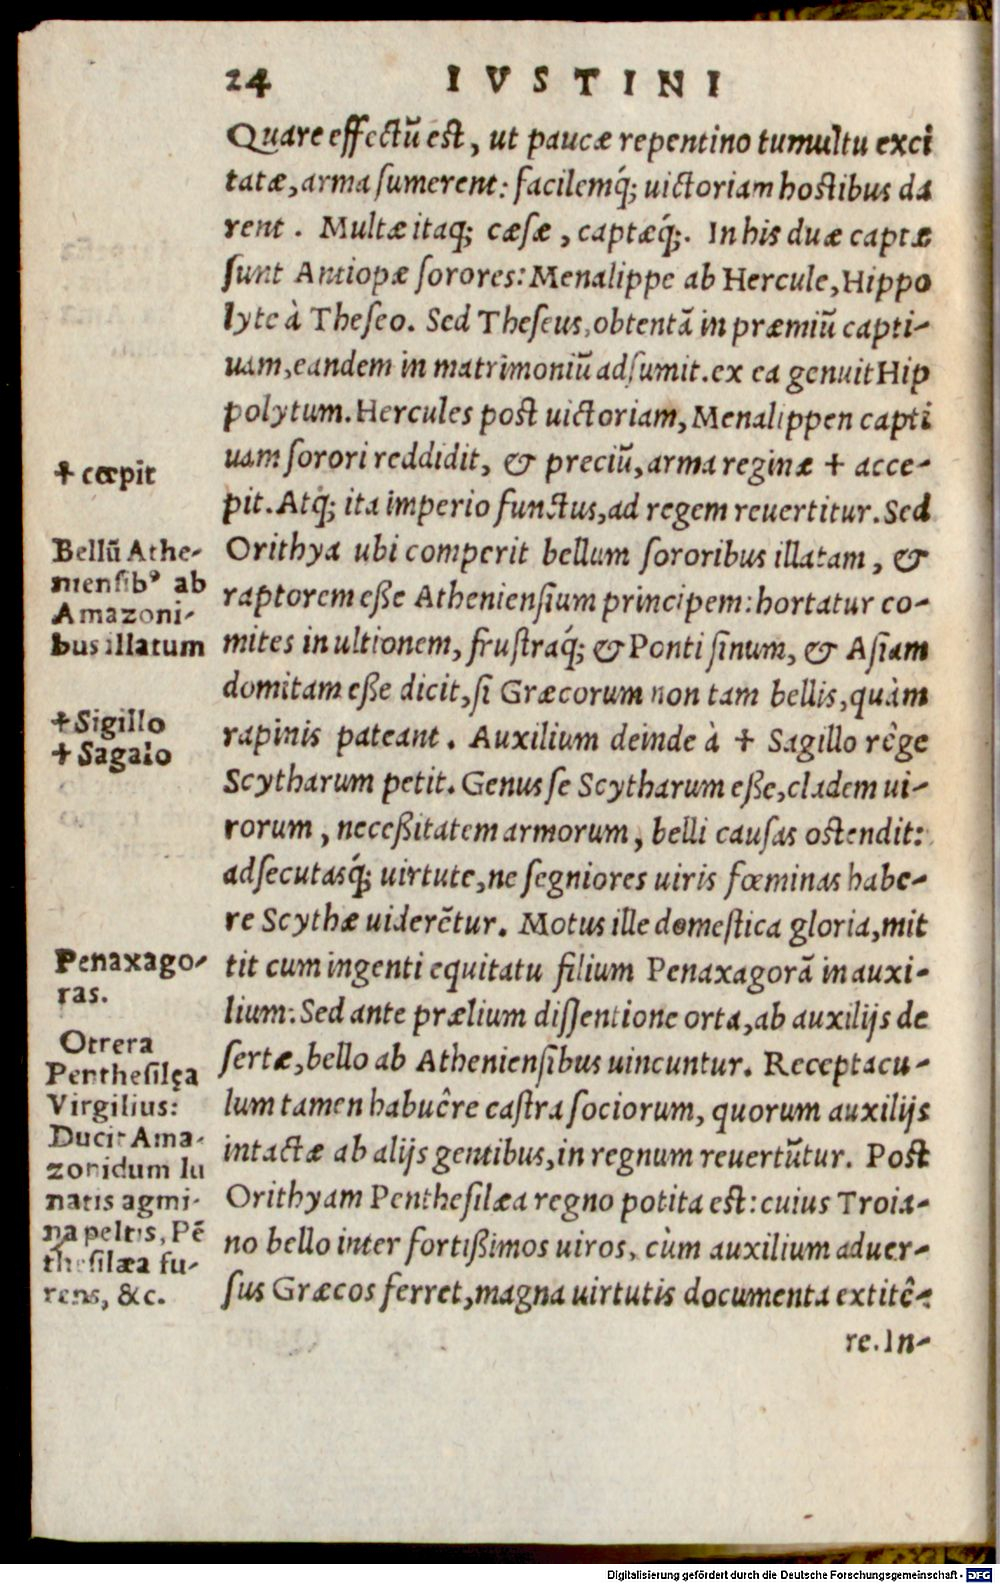 24 IVSTINI
Quare effectũ est, ut paucæ repentino tumultu exci
tatæ, arma sumerent: facilemq́; uictoriam hostibus da
rent. Multæ itaq; cæsæ, captæq́;. In his duæ captæ
sunt Antiopæ sorores: Menalippe ab Hercule, Hippo
lyte à Theseo. Sed Theseus, obtentã in præmiũ capti-
uam, eandem in matrimoniũ adsumit. ex ea genuit Hip
polytum. Hercules post uictoriam, Menalippen capti
uam sorori reddidit, & preciũ, arma reginæ ✝ acce-
pit. Atq; ita imperio functus, ad regem reuertitur. Sed
Orithya ubi comperit bellum sororibus illatam, &
raptorem eße Atheniensium principem: hortatur co-
mites in ultionem, frustraq́; & Ponti sinum, & Asiam
domitam eße dicit, si Græcorum non tam bellis, quàm
rapinis pateant. Auxilium deinde à ✝ Sagillo rêge
Scytharum petit. Genus se Scytharum eße, cladem ui-
rorum, neceßitatem armorum, belli causas ostendit:
adsecutasq́; uirtute, ne segniores uiris fœminas habe-
re Scythæ uiderẽtur. Motus ille domestica gloria, mit
tit cum ingenti equitatu filium Penaxagorã in auxi-
lium: Sed ante prælium dissentione orta, ab auxilijs de
sertæ, bello ab Atheniensibus uincuntur. Receptacu-
lum tamen habuêre castra sociorum, quorum auxilijs
intactæ ab alijs gentibus, in regnum reuertũtur. Post
Orithyam Penthesilæa regno potita est: cuius Troia-
no bello inter fortißimos uiros, cùm auxilium aduer-
sus Græcos ferret, magna uirtutis documenta extitê-
re. In-
✝ cœpit
Bellũ Athe-
niensibꝰ ab
Amazoni-
bus illatum
✝ Sigillo
✝ Sagaio
Penaxago-
ras.
Otrera
Penthesilęa
Virgilius:
Ducit Ama-
zonidum lu
natis agmi-
na peltis, Pẽ
thesilæa fu-
rens, &c.
Digitalisierung gefördert durch die Deutsche Forschungsgemeinschaft - DFG